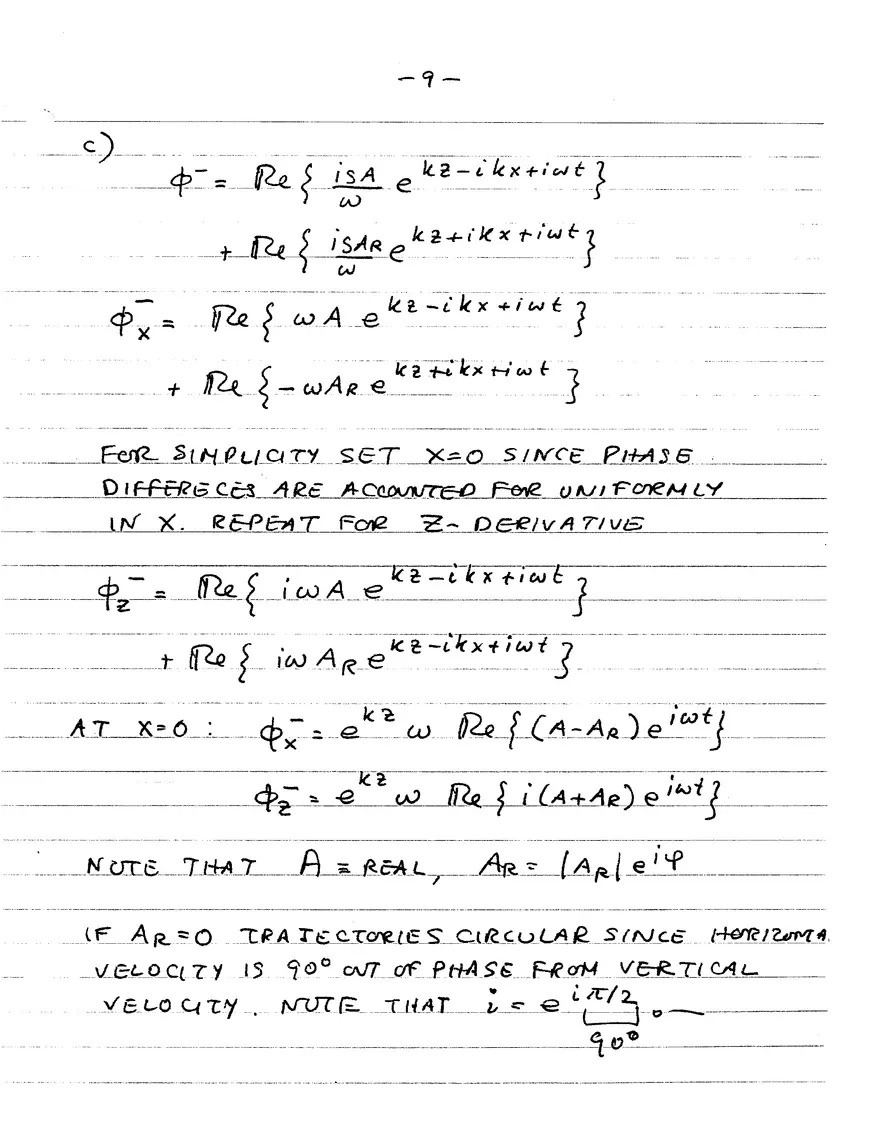 - 9 -
c)
ϕ⁻ = Re { isA/ω e^{kz-ikx+iωt} }
+ Re { isA_R/ω e^{kz+ikx+iωt} }
ϕ_x⁻ = Re { ωA e^{kz-ikx+iωt} }
+ Re { -ωA_R e^{kz+ikx+iωt} }
FOR SIMPLICITY SET X=0 SINCE PHASE
DIFFERECES ARE ACCOUNTED FOR UNIFORMLY
IN X. REPEAT FOR Z- DERIVATIVE
ϕ_z⁻ = Re { iωA e^{kz-ikx+iωt} }
+ Re { iωA_R e^{kz-ikx+iωt} }
AT X=0 : ϕ_x⁻ = e^{kz} ω Re { (A-A_R) e^{iωt} }
ϕ_z⁻ = e^{kz} ω Re { i(A+A_R) e^{iωt} }
NOTE THAT A ≡ REAL, A_R = |A_R| e^{iφ}
IF A_R=0 TRAJECTORIES CIRCULAR SINCE HORIZONTA
VELOCITY IS 90° OUT OF PHASE FROM VERTICAL
VELOCITY. NOTE THAT i = e^{iπ/2}.
90°